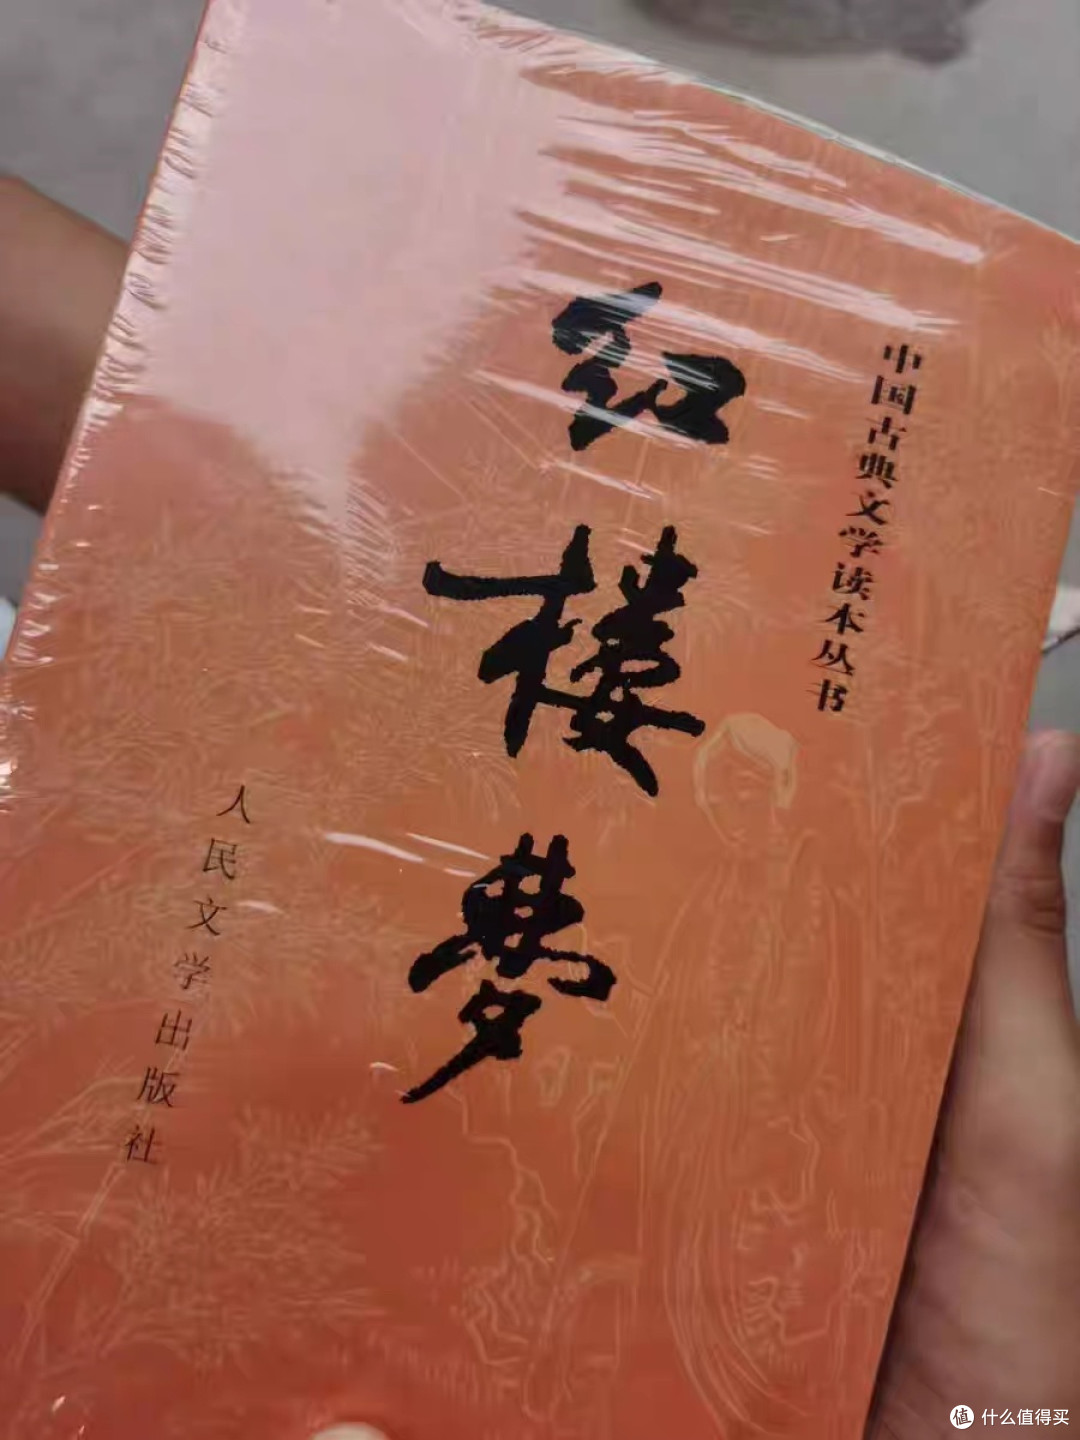 中国古典文学读本丛书
红楼梦
人民文学出版社
值 什么值得买